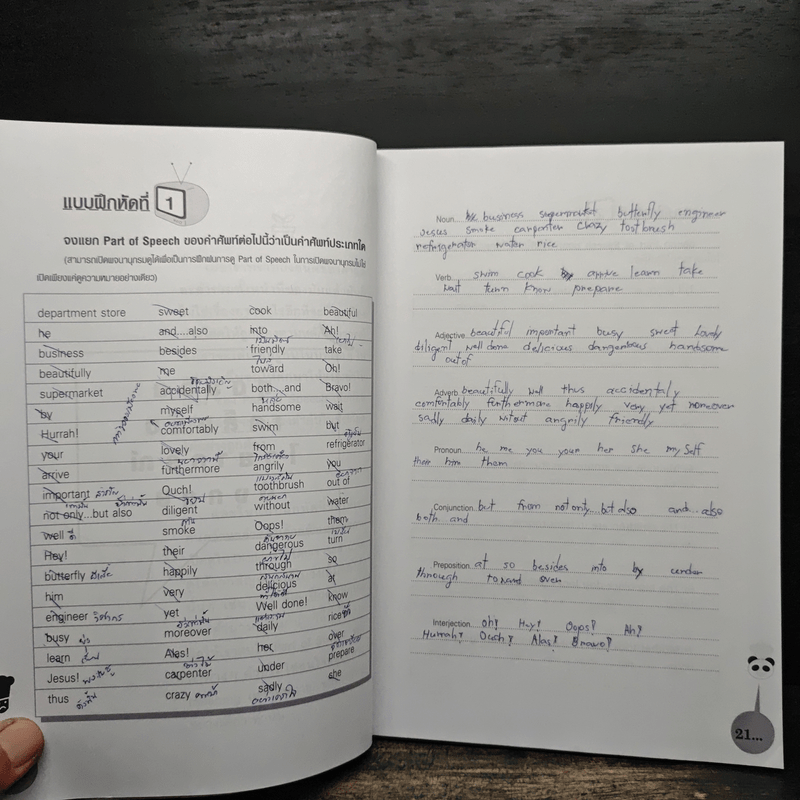 แบบฝึกหัดที่ 1
จงแยก Part of Speech ของคำศัพท์ต่อไปนี้ว่าเป็นคำศัพท์ประเภทใด
(สามารถเปิดพจนานุกรมดูได้เพื่อเป็นการฝึกฝนการดู Part of Speech ในการเปิดพจนานุกรมไม่ใช่
เปิดเพียงแค่ดูความหมายอย่างเดียว)
department store sweet cook beautiful
he and....also into Ah!
business besides friendly take
beautifully me toward Oh!
supermarket accidentally both...and Bravo!
by myself handsome wait
Hurrah! comfortably swim but
your lovely from refrigerator
arrive furthermore angrily you
important Ouch! toothbrush out of
not only...but also diligent without water
well smoke Oops! them
Hey! their dangerous turn
butterfly happily through so
him very delicious at
engineer วิศวกร yet Well done! know
busy moreover daily rice
learn Alas! her over
Jesus! carpenter under prepare
thus crazy sadly she
Noun he business supermarket butterfly engineer
Jesus smoke carpenter crazy tootbrush
refrigerator water rice
Verb swim cook arrive learn take
wait turn know prepare
Adjective beautiful important busy sweet lovely
diligent well done delicious dangerous handsome
out of
Adverb beautifully well thus accidentaly
comfortably furthermore happily very yet moreover
sadly daily witout angrily friendly
Pronoun he me you your her she my self
their him them
Conjunction but from not only...but also and...also
both and
Preposition at so besides into by under
through toward over
Interjection oh! Hey! Oops! Ah!
Hurrah! Ouch! Alas! Bravo!
21...